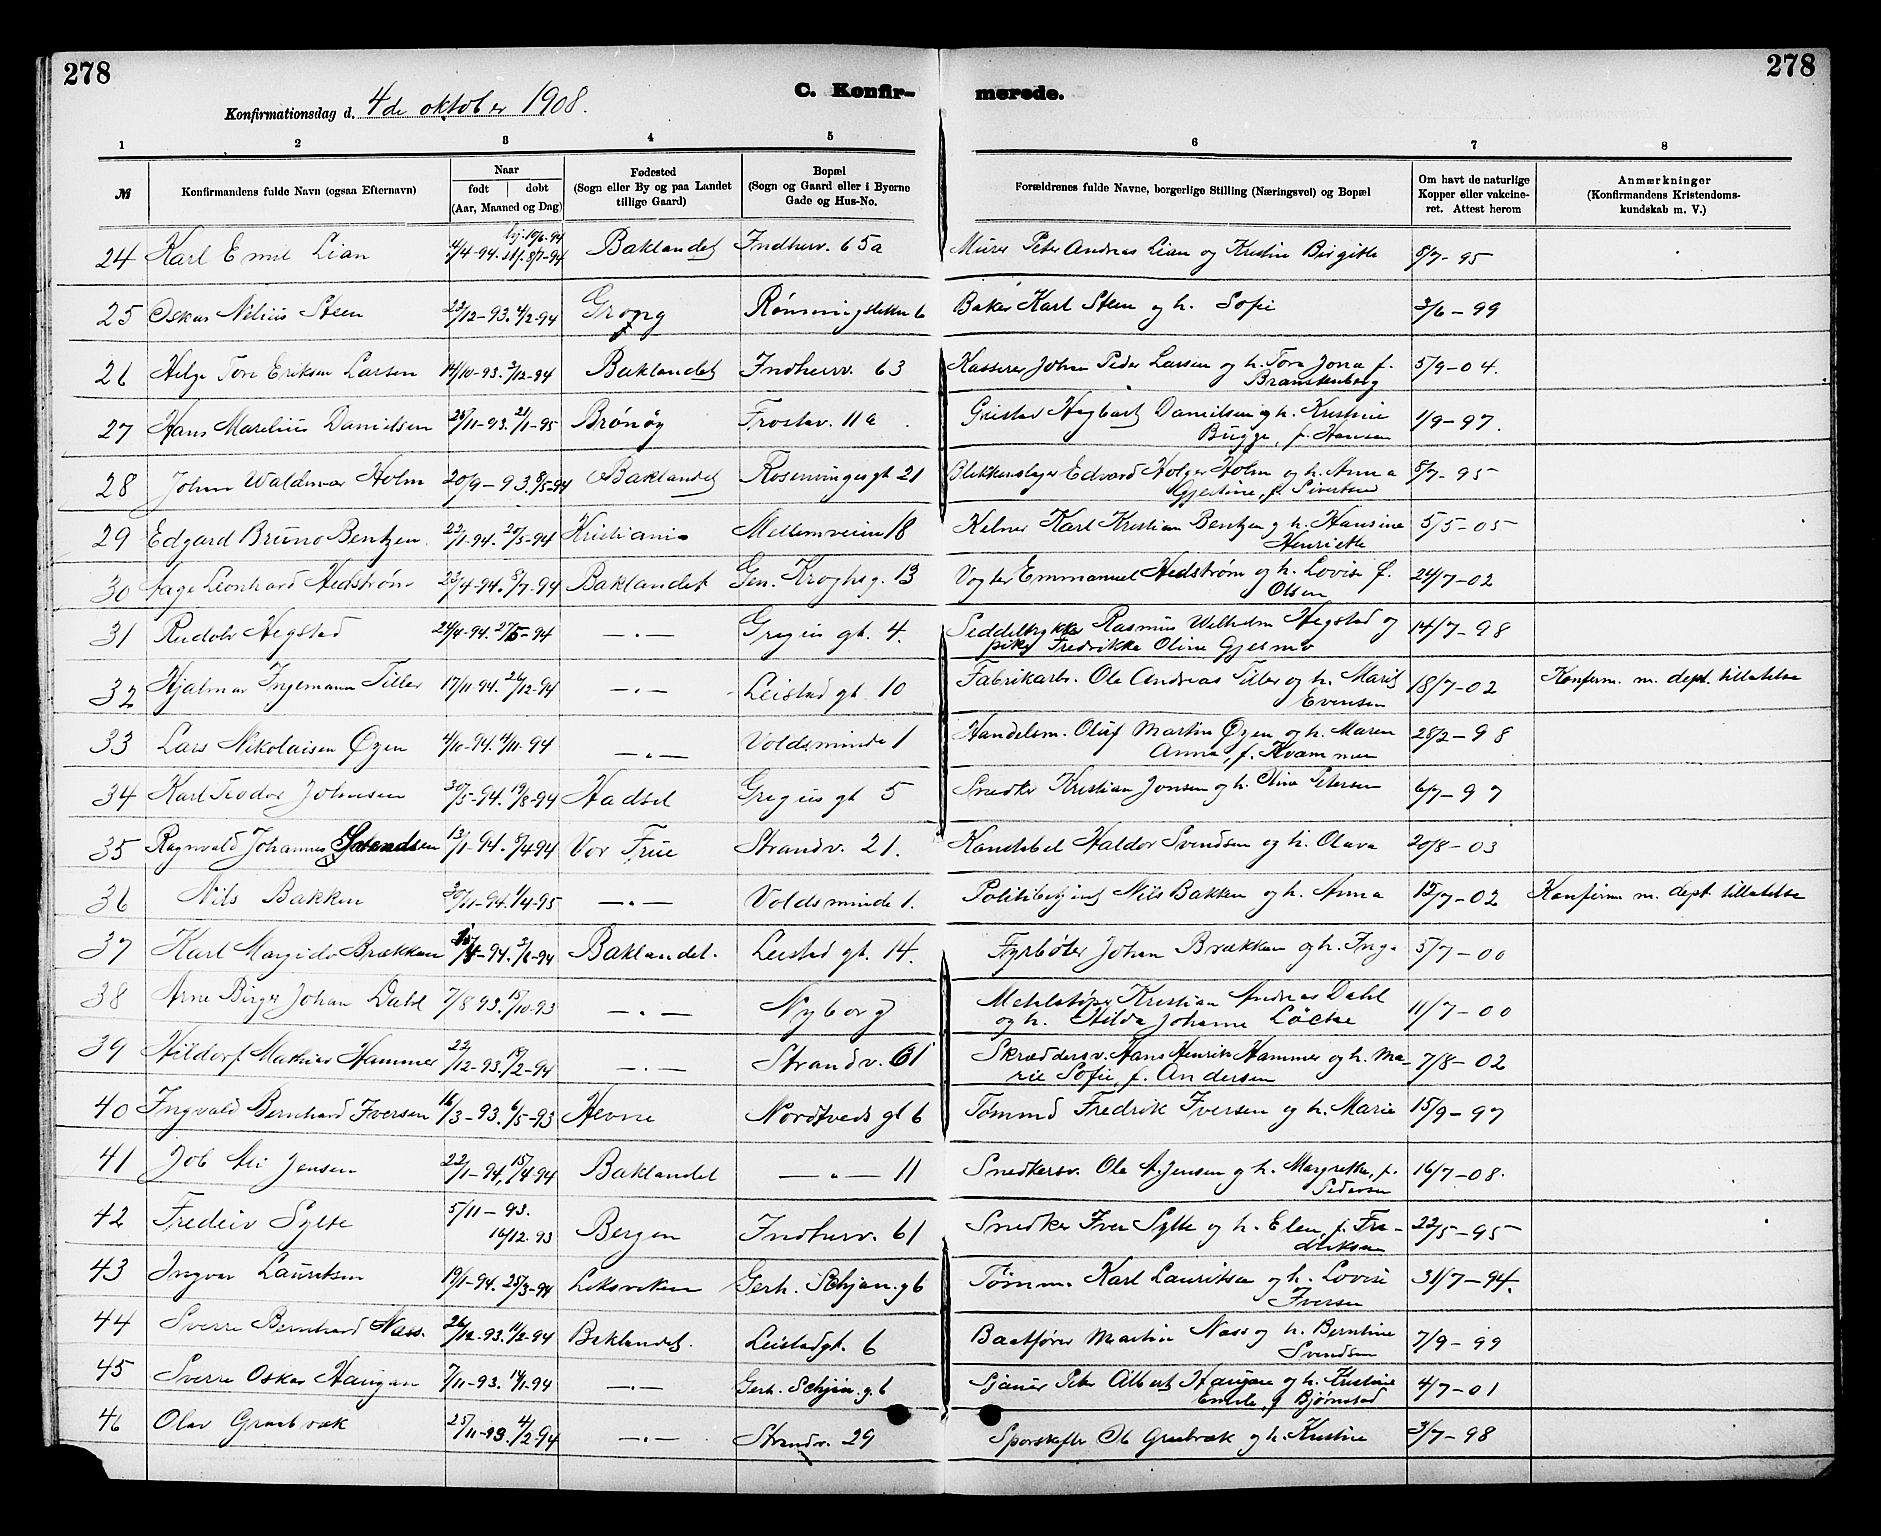 278
278
C. Konfir- merede.
Konfirmationsdag d. 4de oktober 1908.
1 2 3 4 5 6 7 8
№ Konfirmandens fulde Navn (ogsaa Efternavn) Naar født døbt (Aar, Maaned og Dag) Fødested (Sogn eller By og paa Landet tillige Gaard) Bopæl (Sogn og Gaard eller i Byerne Gade og Hus-No. Forældrenes fulde Navne, borgerlige Stilling (Næringsvei) og Bopæl Om havt de naturlige Kopper eller vakcineret. Attest herom Anmærkninger (Konfirmandens Kristendomskundskab m. V.)
24 Karl Emil Lian 4/4-94. hj. 10/6-94 st. 8/7-94 Baklandet Indherv. 65a Murer Peter Andreas Lian og Kristine Birgitte 8/7-95
25 Oskar Nilius Steen 22/12-93. 4/2-94 Grong Rønningsletten 6 Baker Karl Steen og h. Sofie 3/6-99
26 Helge Tore Eriksen Larsen 14/10-93. 3/12-94 Baklandet Indherv. 63 Kasserer Johan Peder Larsen og h. Tora Jona f. Branstenberg 5/9-04.
27 Hans Marelius Danielsen 28/11-93. 21/1-95 Brønøy Frostav. 11a Gustav Hagbart Danielsen og h. Kristine Bugge, f. Hansen 1/9-97.
28 Johan Waldmar Holm 20/9-93. 8/5-94 Baklandet Rosenvingesgt 21 Blikkenslager Edvard Holger Holm og h. Anna Gjestine, f. Sivertsen 8/7-95
29 Edgard Bruno Bentzen. 22/1-94. 20/5-94 Kristiania Mellemveien 18 Kelner Karl Kristian Bentzen og h. Hansine Henriette 5/5-05
30 Aage Leonhard Hedstrøm 23/4-94. 8/7-94 Baklandet Gen. Kroghsg. 13 Vogter Emmanuel Hedstrøm og h. Lovise f. Olsen 24/7-02
31 Rudolv Hegstad 24/4-94. 27/5-94 —"— Gregus gt. 4. Seddeltrykker Rasmus Wilhelm Hegstad og pike Fredrikke Oline Gjesmo 14/7-98
32 Hjalmar Ingemann Tiller 17/11-94. 26/12-94 —"— Leistad gt. 10 Fabrikarb. Ole Andreas Tiller og h. Marit Evensen 18/7-02 Konfirm. m. dept. tillatelse
33 Lars Nikolaisen Øyen 4/10-94. 4/11-94 —"— Voldsminde 1 Handelsm. Oluf Martin Øyen og h. Maren Anna, f. Kvammen 28/2-98
34 Karl Teodor Johnsen 30/5-94. 19/8-94 Hadsel Gregus gt 5 Snedker Kristian Jonsen og h. Oline Petersen 6/7-97
35 Ragnvald Johannes Svendsen 13/1-94. 8/4-94 Vor Frue Strandv. 21. Konstabel Haldor Svendsen og h. Olava 20/8-03
36 Nils Bakken 30/11-94. 1/4-95 —"— Voldsminde 1. Politibetjent Nils Bakken og h. Anna 15/7-02 Konfirm m. dept. tillatelse
37 Karl Margido Brækken /4-94. 3/6-94 Baklandet. Leistad gt. 14. Fyrbøter Johan Brækken og h. Inga 5/7-00
38 Arne Birger Johan Dahl 7/8-93. 15/10-93 —"— Nyborg Metalstøper Kristian Andreas Dahl og h. Hilda Johanne Løcke 11/7-00
39 Hildorf Mathias Hammer 22/12-93. 18/2-94 —"— Strandv. 61 Skræddersv. Hans Henrik Hammer og h. Marie Sofie, f. Andersen 7/8-02
40 Ingvald Bernhard Iversen 16/3-93. 6/5-93 Hevne Nordtveds gt 6 Tømmd Fredrik Iversen og h. Marie 15/9-97
41 Job Ali Jensen 22/1-94. 15/4-94 Baklandet —"— 11 Snedkersv. Ole A. Jensen og h. Margrethe, f. Pedersen 16/7-08.
42 Fredeiv Sylte 5/11-93. 16/12.93 Bergen Indherv. 61 Snedker Iver Sylte og h. Elen, f. Fredriksen 22/5-95
43 Ingvar Lauritsen 19/1-94. 25/3-94 Leksviken Gerh. Schjøn. g 6 Tømm. Karl Lauritsen og h. Lovise Iversen 31/7-94.
44 Sverre Bernhard Næss. 26/12-93. 11/2-94 Baklandet. Leistadgt. 6 Baatfører Martin Næss og h. Berntine Svendsen 7/9-99
45 Sverre Oskar Haugan 7/11-93. 14/1-94 —"— Gerh. Schjøn. g. 6 Sjauer Peter Albert Haugan og h. Kristine Emilie, f Bjørnstad 4/7-01
46 Olav Græsbræk 25/11-93. 4/2 94 —"— Strandv. 29 Sporskifter Ole Græsbræk og h. Kristine 3/7-98